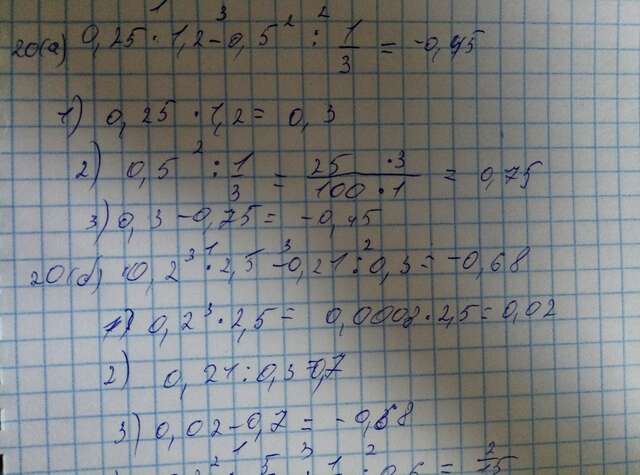 20(а) 0,25 · 1,2 - 0,5² : 1/3 = -0,45
1) 0,25 · 1,2 = 0,3
2) 0,5² : 1/3 = 25 · 3 / 100 · 1 = 0,75
3) 0,3 - 0,75 = -0,45
20(б) 0,2³ · 2,5 - 0,21 : 0,3 = -0,68
1) 0,2³ · 2,5 = 0,0008 · 2,5 = 0,02
2) 0,21 : 0,3 = 0,7
3) 0,02 - 0,7 = -0,68